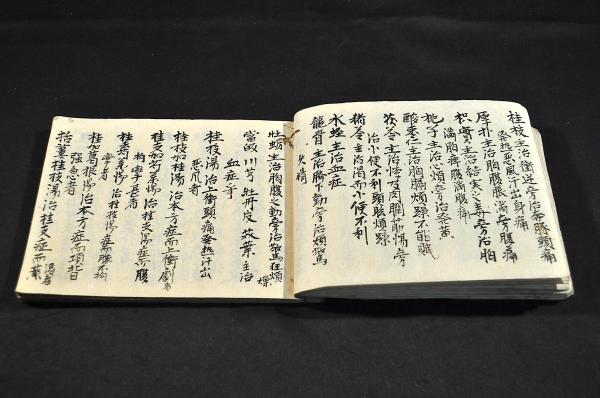 桂枝主治衝逆旁治奔豚頭痛
発熱悪風汗出身痛
厚朴主治胸腹脹満旁腹痛
枳實主治結実之毒旁治胸
満胸痛腹満腹痛
梔子主治心煩旁治発黄
酸枣仁主治胸膈煩躁不能眠
茯苓主治悸及肉瞤筋惕旁
治小便不利頭眩煩躁
猪苓主治渇而小便不利
水蛭主治血症
龍骨主治臍下動旁治煩驚
失精
牡蛎主治胸腹之動旁治驚狂煩
燥
當皈 川芎 牡丹皮 主治
血症
桂枝湯治上衝頭痛発熱汗出
悪風者
桂枝加桂湯治本方症而上衝劇者
桂枝加芍薬湯治桂枝湯症而腹
拘攣甚者
桂枝去芍薬湯治桂枝湯症而不拘
攣者
桂枝加葛根湯治本方症而項背
強急者
括蔞桂枝湯治桂枝症而渇者